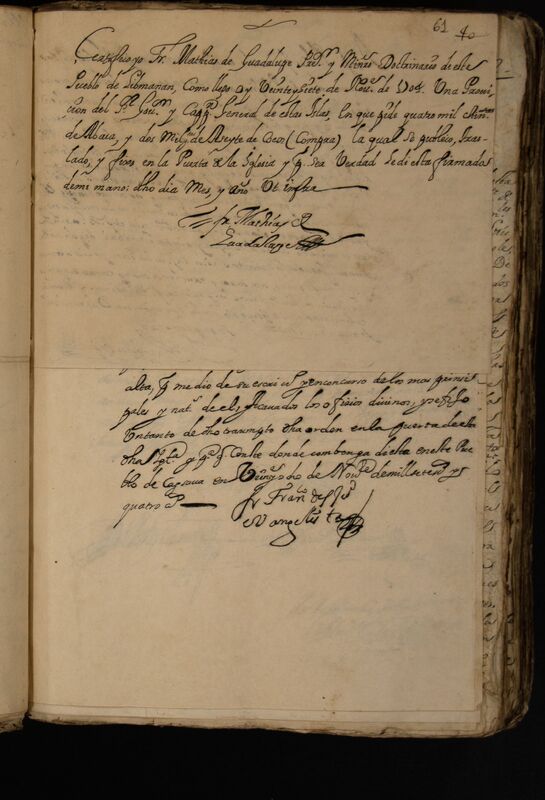 61 40
Certifico yo Fr. Mathias de Guadalupe Pred.r y Minro Doctrinero de este
Pueblo de Submanan, Como llego oy Veinte y siete de Nov.e de 704. Una Provi
cion del S.r Gov.or y Cap.n General de estas Islas, En que pide quatro mil
de Abaca, y dos mil de Aseyte de Coco (Compra) la qual se publico, tras
lado, y fixo en la Puerta de la Iglesia y q. sea Verdad se di esta firmada
de mi mano: dho dia Mes, y año Ut infra
fr. Mathias d
Guadalupe
alta, q medio de su escri y en concurso de los mas prinsi
pales y nat.s de el, Acavados los ofisios divinos, y se fixo
Un tanto de dho trasumpto dha orden en la puerta de
dha Ygl.a y p.a q Conste donde combenga di esta en este Pue
blo de Capsua en Veinte y ocho de Nov.e de mill sete.s y
quatro a.s
fr Fran.co de los
Evangelistas